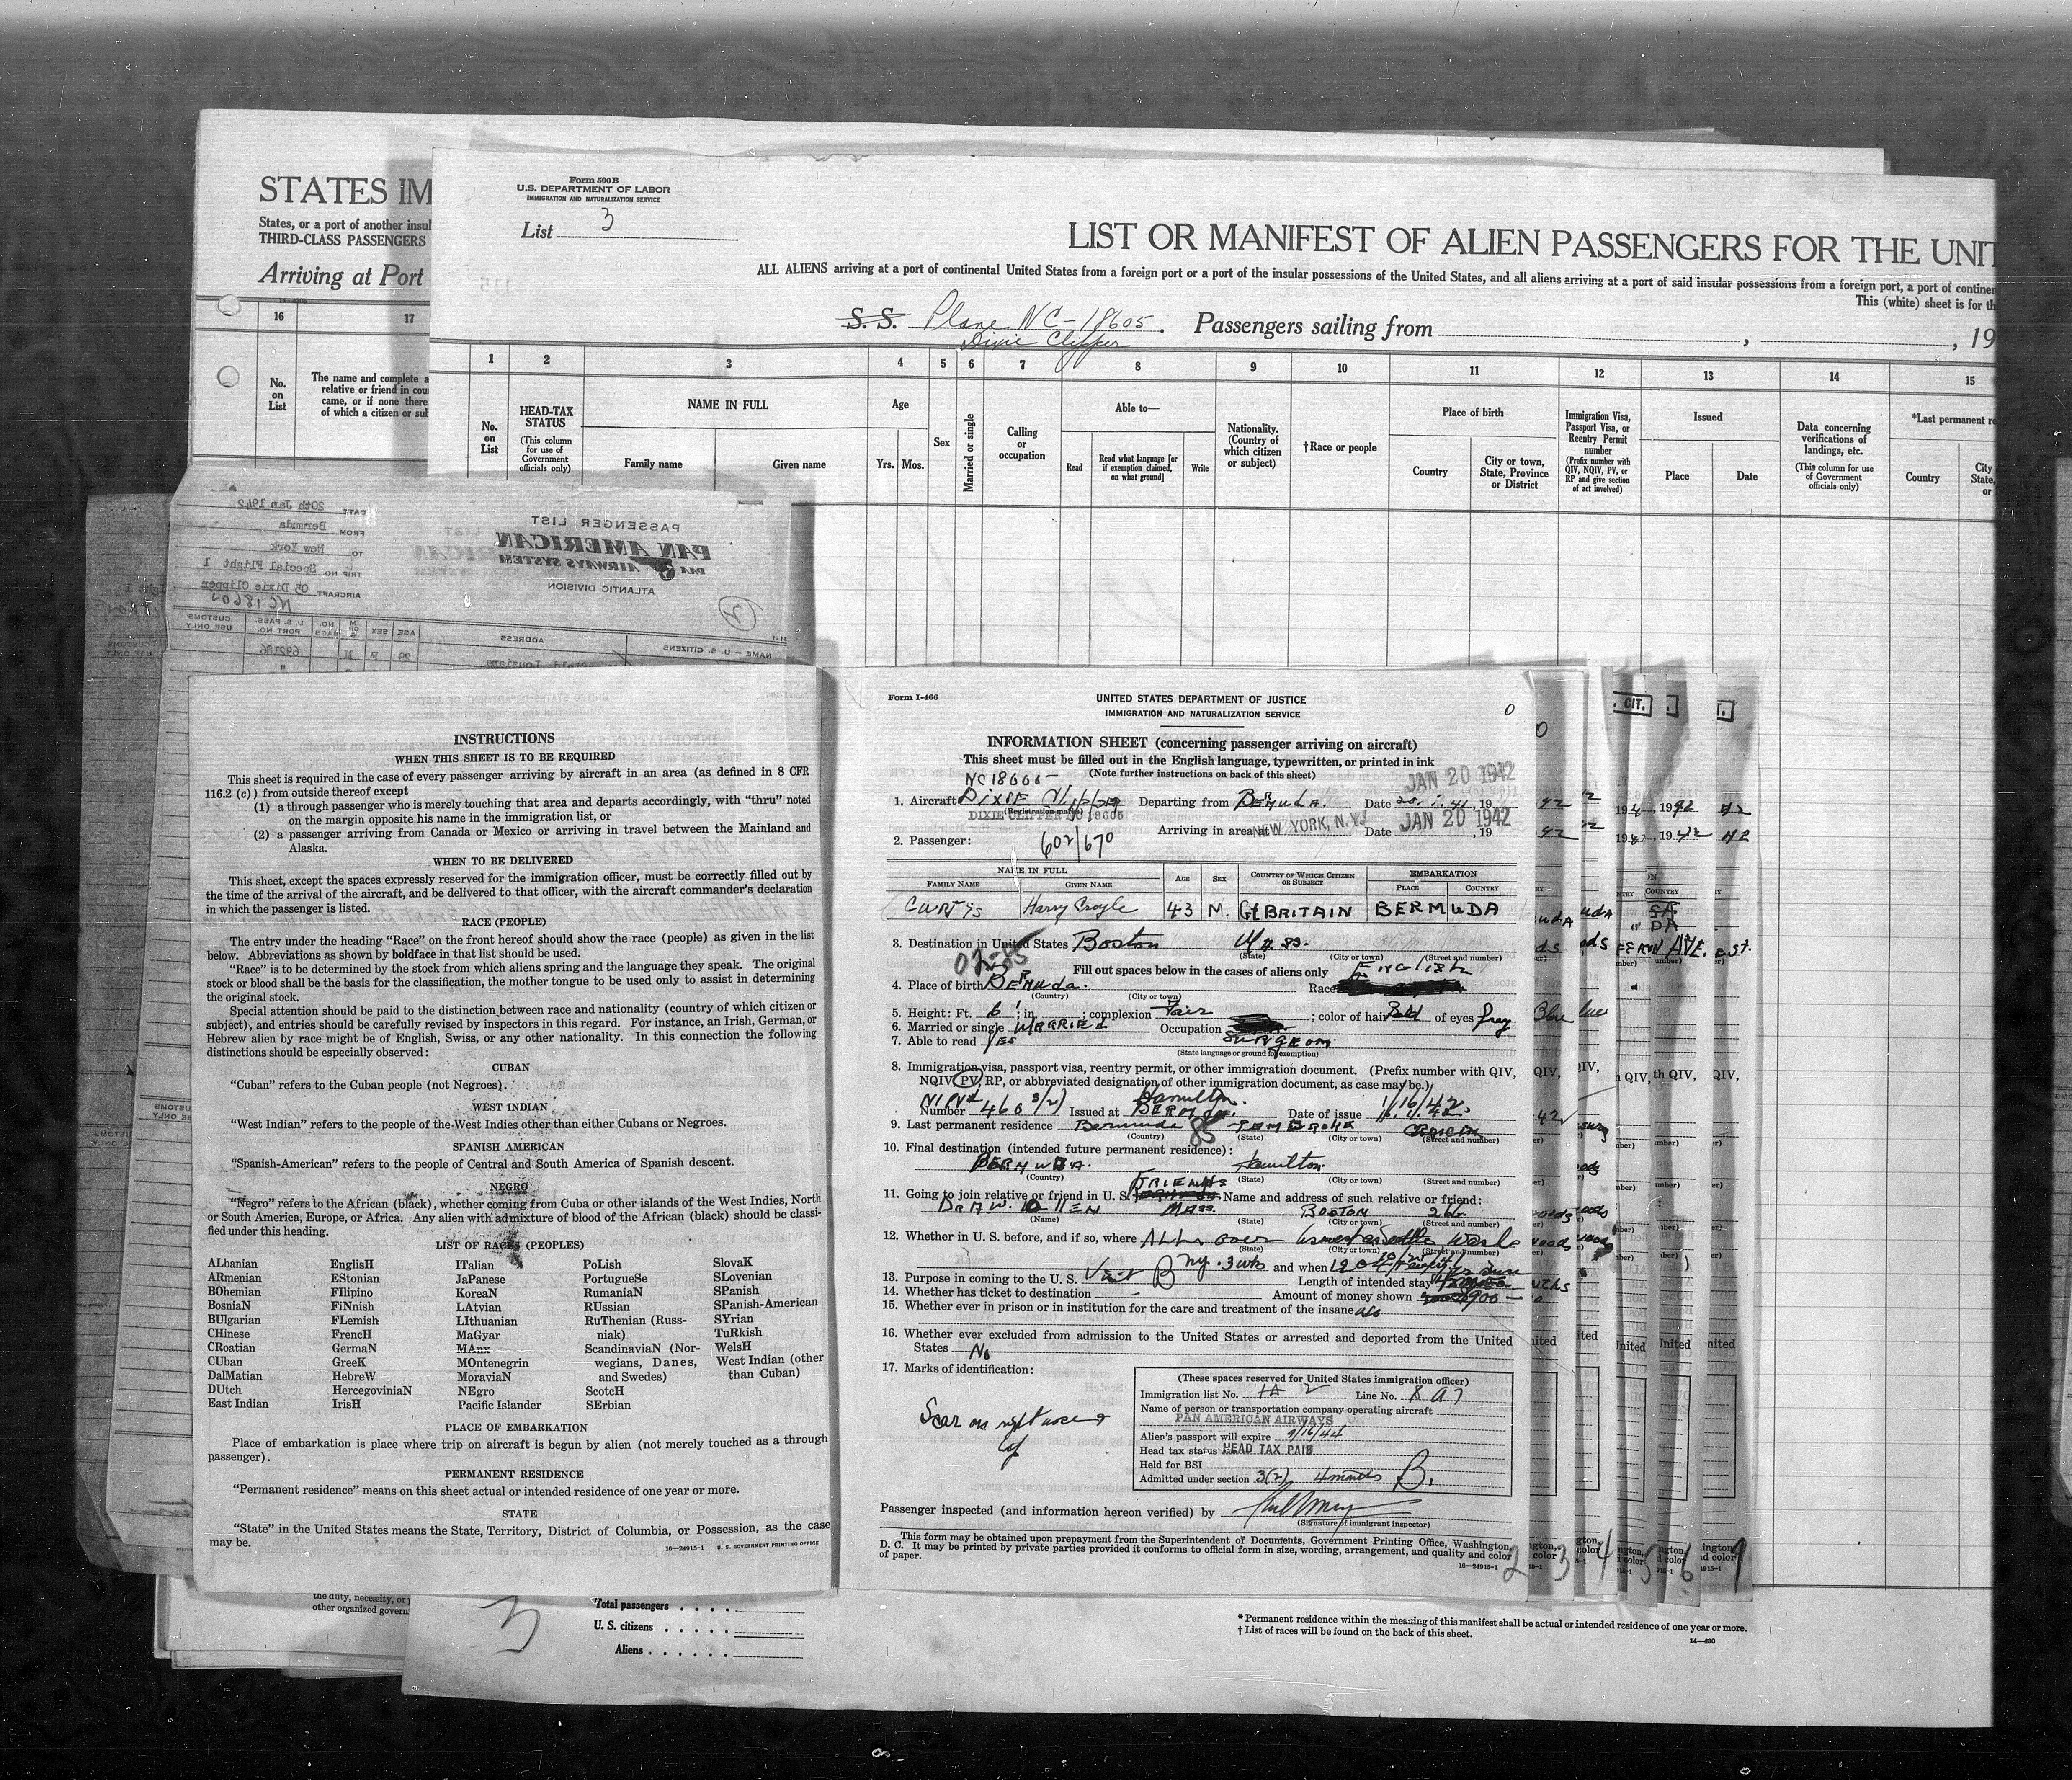 STATES IM
States, or a port of another insul
THIRD-CLASS PASSENGERS
Arriving at Port
16 17
No. on List
The name and complete a
relative or friend in cou
came, or if none there,
of which a citizen or sub
Form 500B
U.S. DEPARTMENT OF LABOR
IMMIGRATION AND NATURALIZATION SERVICE
List 3
LIST OR MANIFEST OF ALIEN PASSENGERS FOR THE UNIT
ALL ALIENS arriving at a port of continental United States from a foreign port or a port of the insular possessions of the United States, and all aliens arriving at a port of said insular possessions from a foreign port, a port of continen
This (white) sheet is for th
S. S. Plane NC-18605. Passengers sailing from , , 19
Dixie Clipper
1 2 3 4 5 6 7 8 9 10 11 12 13 14 15
No. on List
HEAD-TAX STATUS
(This column for use of Government officials only)
NAME IN FULL
Family name Given name
Age
Yrs. Mos.
Sex
Married or single
Calling or occupation
Able to—
Read
Read what language [or if exemption claimed, on what ground]
Write
Nationality. (Country of which citizen or subject)
†Race or people
Place of birth
Country
City or town, State, Province or District
Immigration Visa, Passport Visa, or Reentry Permit number
(Prefix number with QIV, NQIV, PV, or RP and give section of act involved)
Issued
Place Date
Data concerning verifications of landings, etc.
(This column for use of Government officials only)
*Last permanent re
Country
City
State,
or
PASSENGER LIST
PAN AMERICAN
PAA AIRWAYS SYSTEM
ATLANTIC DIVISION
DATE 20th Jan 1942
FROM Bermuda
TO New York
TRIP NO. Special Flight 1
AIRCRAFT 05 Dixie Clipper
NC 18605
NAME — U. S. CITIZENS ADDRESS AGE SEX M OR S NO. BAGS U. S. PASSPORT NO. CUSTOMS USE ONLY
29 F M 692186
INSTRUCTIONS
WHEN THIS SHEET IS TO BE REQUIRED
This sheet is required in the case of every passenger arriving by aircraft in an area (as defined in 8 CFR
116.2 (c)) from outside thereof except
(1) a through passenger who is merely touching that area and departs accordingly, with "thru" noted
on the margin opposite his name in the immigration list, or
(2) a passenger arriving from Canada or Mexico or arriving in travel between the Mainland and
Alaska.
WHEN TO BE DELIVERED
This sheet, except the spaces expressly reserved for the immigration officer, must be correctly filled out by
the time of the arrival of the aircraft, and be delivered to that officer, with the aircraft commander's declaration
in which the passenger is listed.
RACE (PEOPLE)
The entry under the heading "Race" on the front hereof should show the race (people) as given in the list
below. Abbreviations as shown by boldface in that list should be used.
"Race" is to be determined by the stock from which aliens spring and the language they speak. The original
stock or blood shall be the basis for the classification, the mother tongue to be used only to assist in determining
the original stock.
Special attention should be paid to the distinction between race and nationality (country of which citizen or
subject), and entries should be carefully revised by inspectors in this regard. For instance, an Irish, German, or
Hebrew alien by race might be of English, Swiss, or any other nationality. In this connection the following
distinctions should be especially observed:
CUBAN
"Cuban" refers to the Cuban people (not Negroes).
WEST INDIAN
"West Indian" refers to the people of the West Indies other than either Cubans or Negroes.
SPANISH AMERICAN
"Spanish-American" refers to the people of Central and South America of Spanish descent.
NEGRO
"Negro" refers to the African (black), whether coming from Cuba or other islands of the West Indies, North
or South America, Europe, or Africa. Any alien with admixture of blood of the African (black) should be classi-
fied under this heading.
LIST OF RACES (PEOPLES)
ALbanian EnglisH ITalian PoLish SlovaK
ARmenian EStonian JaPanese PortugueSe SLovenian
BOhemian FIlipino KoreaN RumaniaN SPanish
BosniaN FiNnish LAtvian RUssian SPanish-American
BUlgarian FLemish LIthuanian RuThenian (Russ- SYrian
CHinese FrencH MaGyar niak) TuRkish
CRoatian GermaN MAnx ScandinaviaN (Nor- WelsH
CUban GreeK MOntenegrin wegians, Danes, West Indian (other
DalMatian HebreW MoraviaN and Swedes) than Cuban)
DUtch HercegoviniaN NEgro ScotcH
East Indian IrisH Pacific Islander SErbian
PLACE OF EMBARKATION
Place of embarkation is place where trip on aircraft is begun by alien (not merely touched as a through
passenger).
PERMANENT RESIDENCE
"Permanent residence" means on this sheet actual or intended residence of one year or more.
STATE
"State" in the United States means the State, Territory, District of Columbia, or Possession, as the case
may be.
16—24915-1 U. S. GOVERNMENT PRINTING OFFICE
Form I-466
UNITED STATES DEPARTMENT OF JUSTICE
IMMIGRATION AND NATURALIZATION SERVICE
0
INFORMATION SHEET (concerning passenger arriving on aircraft)
This sheet must be filled out in the English language, typewritten, or printed in ink
(Note further instructions on back of this sheet)
NC18605 JAN 20 1942
1. Aircraft Dixie Clipper Departing from Bermuda. Date 20.1.41, 19
(Registration mark)
DIXIE CLIPPER NC 18605
Arriving in area at NEW YORK, N.Y. Date JAN 20 1942, 19
2. Passenger: 602/670
NAME IN FULL AGE SEX COUNTRY OF WHICH CITIZEN OR SUBJECT EMBARKATION
FAMILY NAME GIVEN NAME PLACE COUNTRY
Curtis Harry Croyle 43 M. Gt BRITAIN BERMUDA
3. Destination in United States Boston Mass.
(State) (City or town) (Street and number)
02-85
Fill out spaces below in the cases of aliens only English
4. Place of birth Bermuda. Race
(Country) (City or town)
5. Height: Ft. 6 ; in. ; complexion Fair ; color of hair Bld of eyes Grey
6. Married or single MARRIED Occupation
7. Able to read Yes Surgeon.
(State language or ground for exemption)
8. Immigration visa, passport visa, reentry permit, or other immigration document. (Prefix number with QIV,
NQIV, PV, RP, or abbreviated designation of other immigration document, as case may be.)
Hamilton. 1/16/42
Number 460 3(2) Issued at Bermuda. Date of issue 16.1.42.
9. Last permanent residence Bermuda 85 Pembroke
(Country) (State) (City or town) (Street and number)
10. Final destination (intended future permanent residence):
BERMUDA. Hamilton.
(Country) (State) (City or town) (Street and number)
FRIENDS
11. Going to join relative or friend in U. S. Name and address of such relative or friend:
Dr A W. Allen Mass. BOSTON 266
(Name) (State) (City or town) (Street and number)
12. Whether in U. S. before, and if so, where All over
(State) (City or town) (Street and number)
NY. 3 wks and when
13. Purpose in coming to the U. S. Visit B Length of intended stay
14. Whether has ticket to destination - Amount of money shown 900 —
15. Whether ever in prison or in institution for the care and treatment of the insane no
16. Whether ever excluded from admission to the United States or arrested and deported from the United
States No
17. Marks of identification:
Scar on right
(These spaces reserved for United States immigration officer)
Immigration list No. 2 Line No. 8
Name of person or transportation company operating aircraft
PAN AMERICAN AIRWAYS
Alien's passport will expire 9/16/44
Head tax status HEAD TAX PAID
Held for BSI
Admitted under section 3(2) 4 months B.
Passenger inspected (and information hereon verified) by
(Signature of immigrant inspector)
This form may be obtained upon prepayment from the Superintendent of Documents, Government Printing Office, Washington,
D. C. It may be printed by private parties provided it conforms to official form in size, wording, arrangement, and quality and color
of paper.
16—24915-1
2 3 4 5 6 7
the duty, necessity, or p
other organized govern
3
Total passengers
U. S. citizens
Aliens
* Permanent residence within the meaning of this manifest shall be actual or intended residence of one year or more.
† List of races will be found on the back of this sheet.
14—430